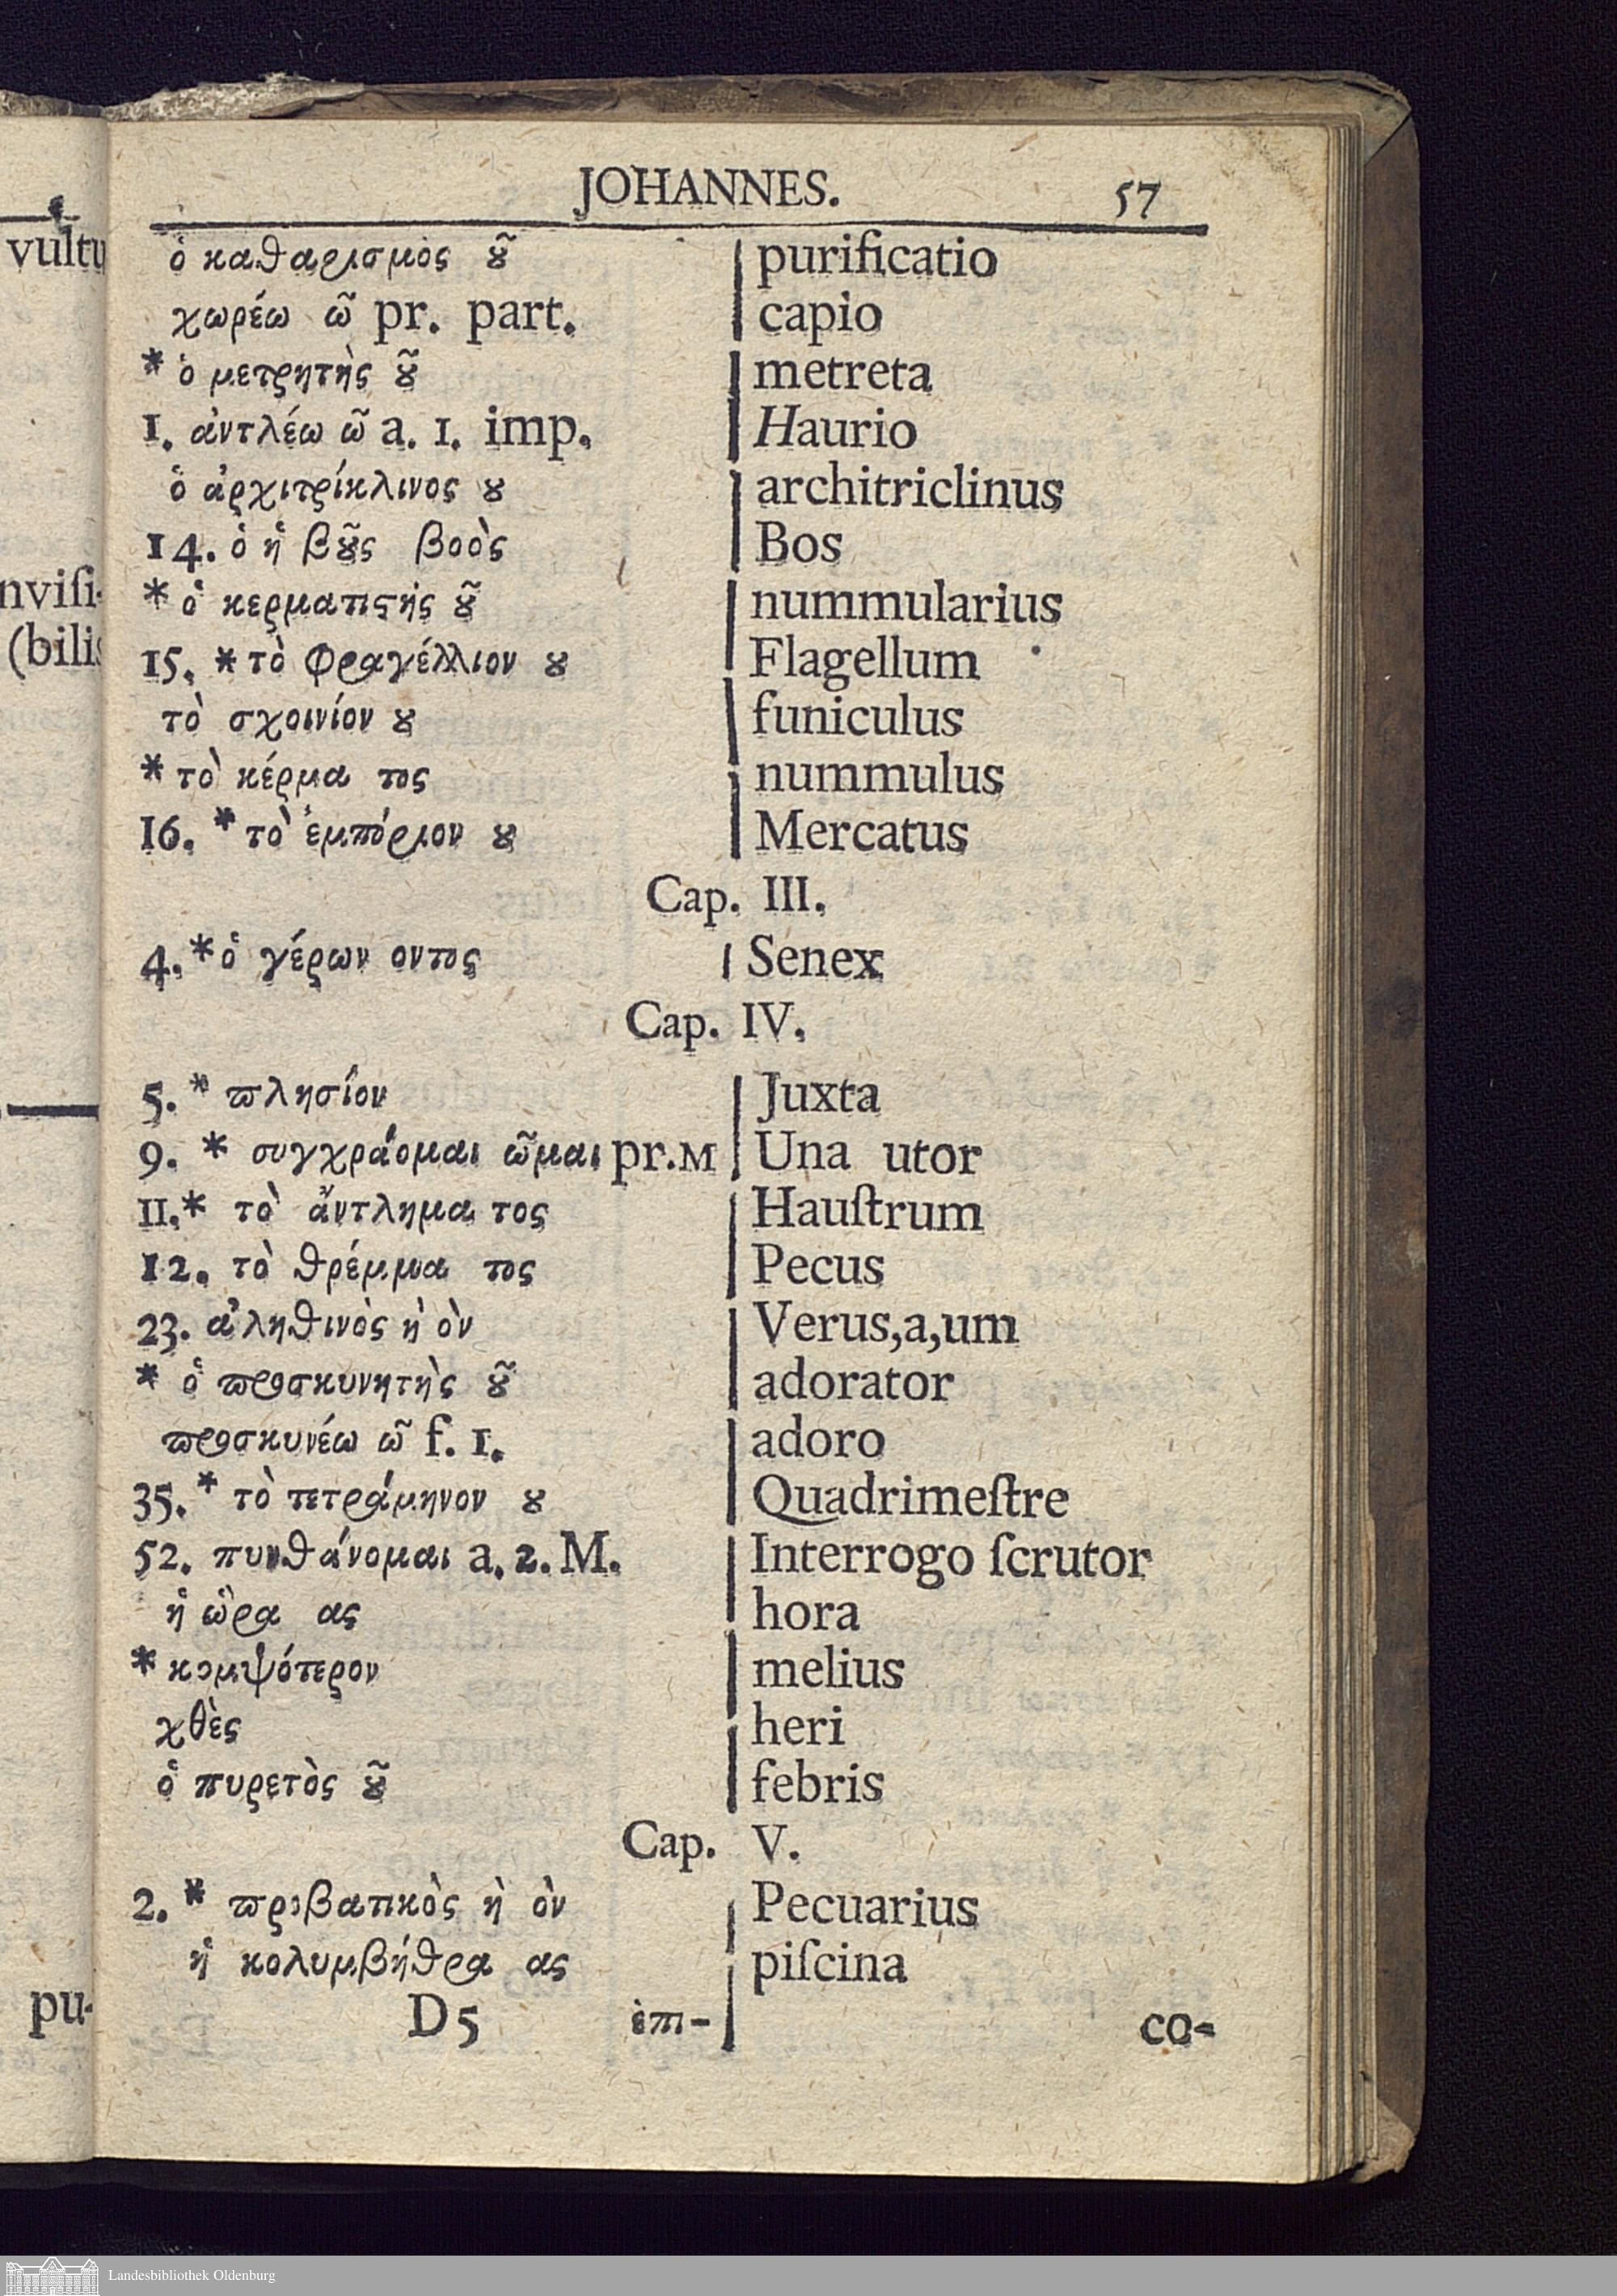 JOHANNES. 57
ὁ καθαρισμὸς ȣ͂ purificatio
χωρέω ῶ pr. part. capio
* ὁ μετρητὴς ȣ͂ metreta
1. ἀντλέω ῶ a. 1. imp. Haurio
ὁ ἀρχιτρίκλινος ȣ architriclinus
14. ὁ ἡ βȣ͂ς βοὸς Bos
* ὁ κερματιϛὴς ȣ͂ nummularius
15. * τὸ φραγέλλιον ȣ Flagellum
τὸ σχοινίον ȣ funiculus
* τὸ κέρμα τος nummulus
16. * τὸ ἐμπόριον ȣ Mercatus
Cap. III.
4. * ὁ γέρων οντος Senex
Cap. IV.
5. * πλησίον Juxta
9. * συγχράομαι ῶμαι pr. M Una utor
11. * τὸ ἄντλημα τος Hauſtrum
12. τὸ θρέμμα τος Pecus
23. ἀληθινὸς ὴ ὸν Verus,a,um
* ὁ προσκυνητὴς ȣ͂ adorator
προσκυνέω ῶ f. 1. adoro
35. * τὸ τετράμηνον ȣ Quadrimeſtre
52. πυνθάνομαι a. 2. M. Interrogo ſcrutor
ἡ ὥρα ας hora
* κομψότερον melius
χθὲς heri
ὁ πυρετὸς ȣ͂ febris
Cap. V.
2. * προβατικὸς ὴ ὸν Pecuarius
ἡ κολυμβήθρα ας piſcina
D 5 ἐπι- co-
vultu
nviſi-
(bilis
pu-
Landesbibliothek Oldenburg